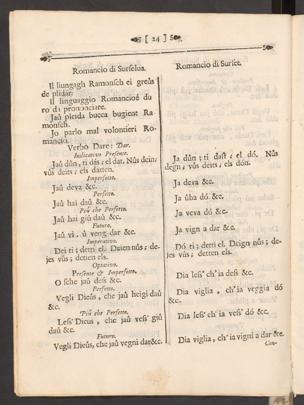 [ 24 ]
Romancio di Surselva.
Il liungagh Ramonsch ei greûs
de plidar.
Il linguaggio Romancio é du
ro di pronunciare.
Jau pleida bucca bugient Ra
monsch.
Jo parlo mal volontieri Ro-
mancio.
Verbo Dare: Dar.
Indicativo Presente.
Jau dùn, ti dàs, el dat. Nus dein;
vus deits; els datten.
Imperfetto.
Jau deva &c.
Perfetto.
Jau hai daû &c.
Più che Perfetto.
Jau hai giû daû &c.
Futuro.
Jau vi. û veng dar &c.
Imperativo.
Dei ti; detti el. Deien nûs; de-
jes vûs; detten els.
Optativo.
Presente & Imperfetto.
O sche jaû dess &c.
Perfetto.
Vegli Dieûs, che jaû heigi daû
&c.
Più che Perfetto.
Less' Dieus, che jaû vess' giû
daû &c.
Futuro.
Vegli Dieûs, che jaû vegni dar &c.
Romancio di Surset.
Ja dùn; ti dast; el dó. Nùs
degn; vùs deits; els dón.
Ja deva &c.
Ja ûha dó &c.
Ja veva dó &c.
Ja vign a dar &c.
Dó ti; detti el. Deign nûs; de-
jes vûs; detien els.
Dia less' ch'ia dess &c.
Dia viglia, ch'ia veggia dó
&c.
Dia less' ch'ia vess' dó &c.
Dia viglia, ch'ia vigni a dar &c.
Con-